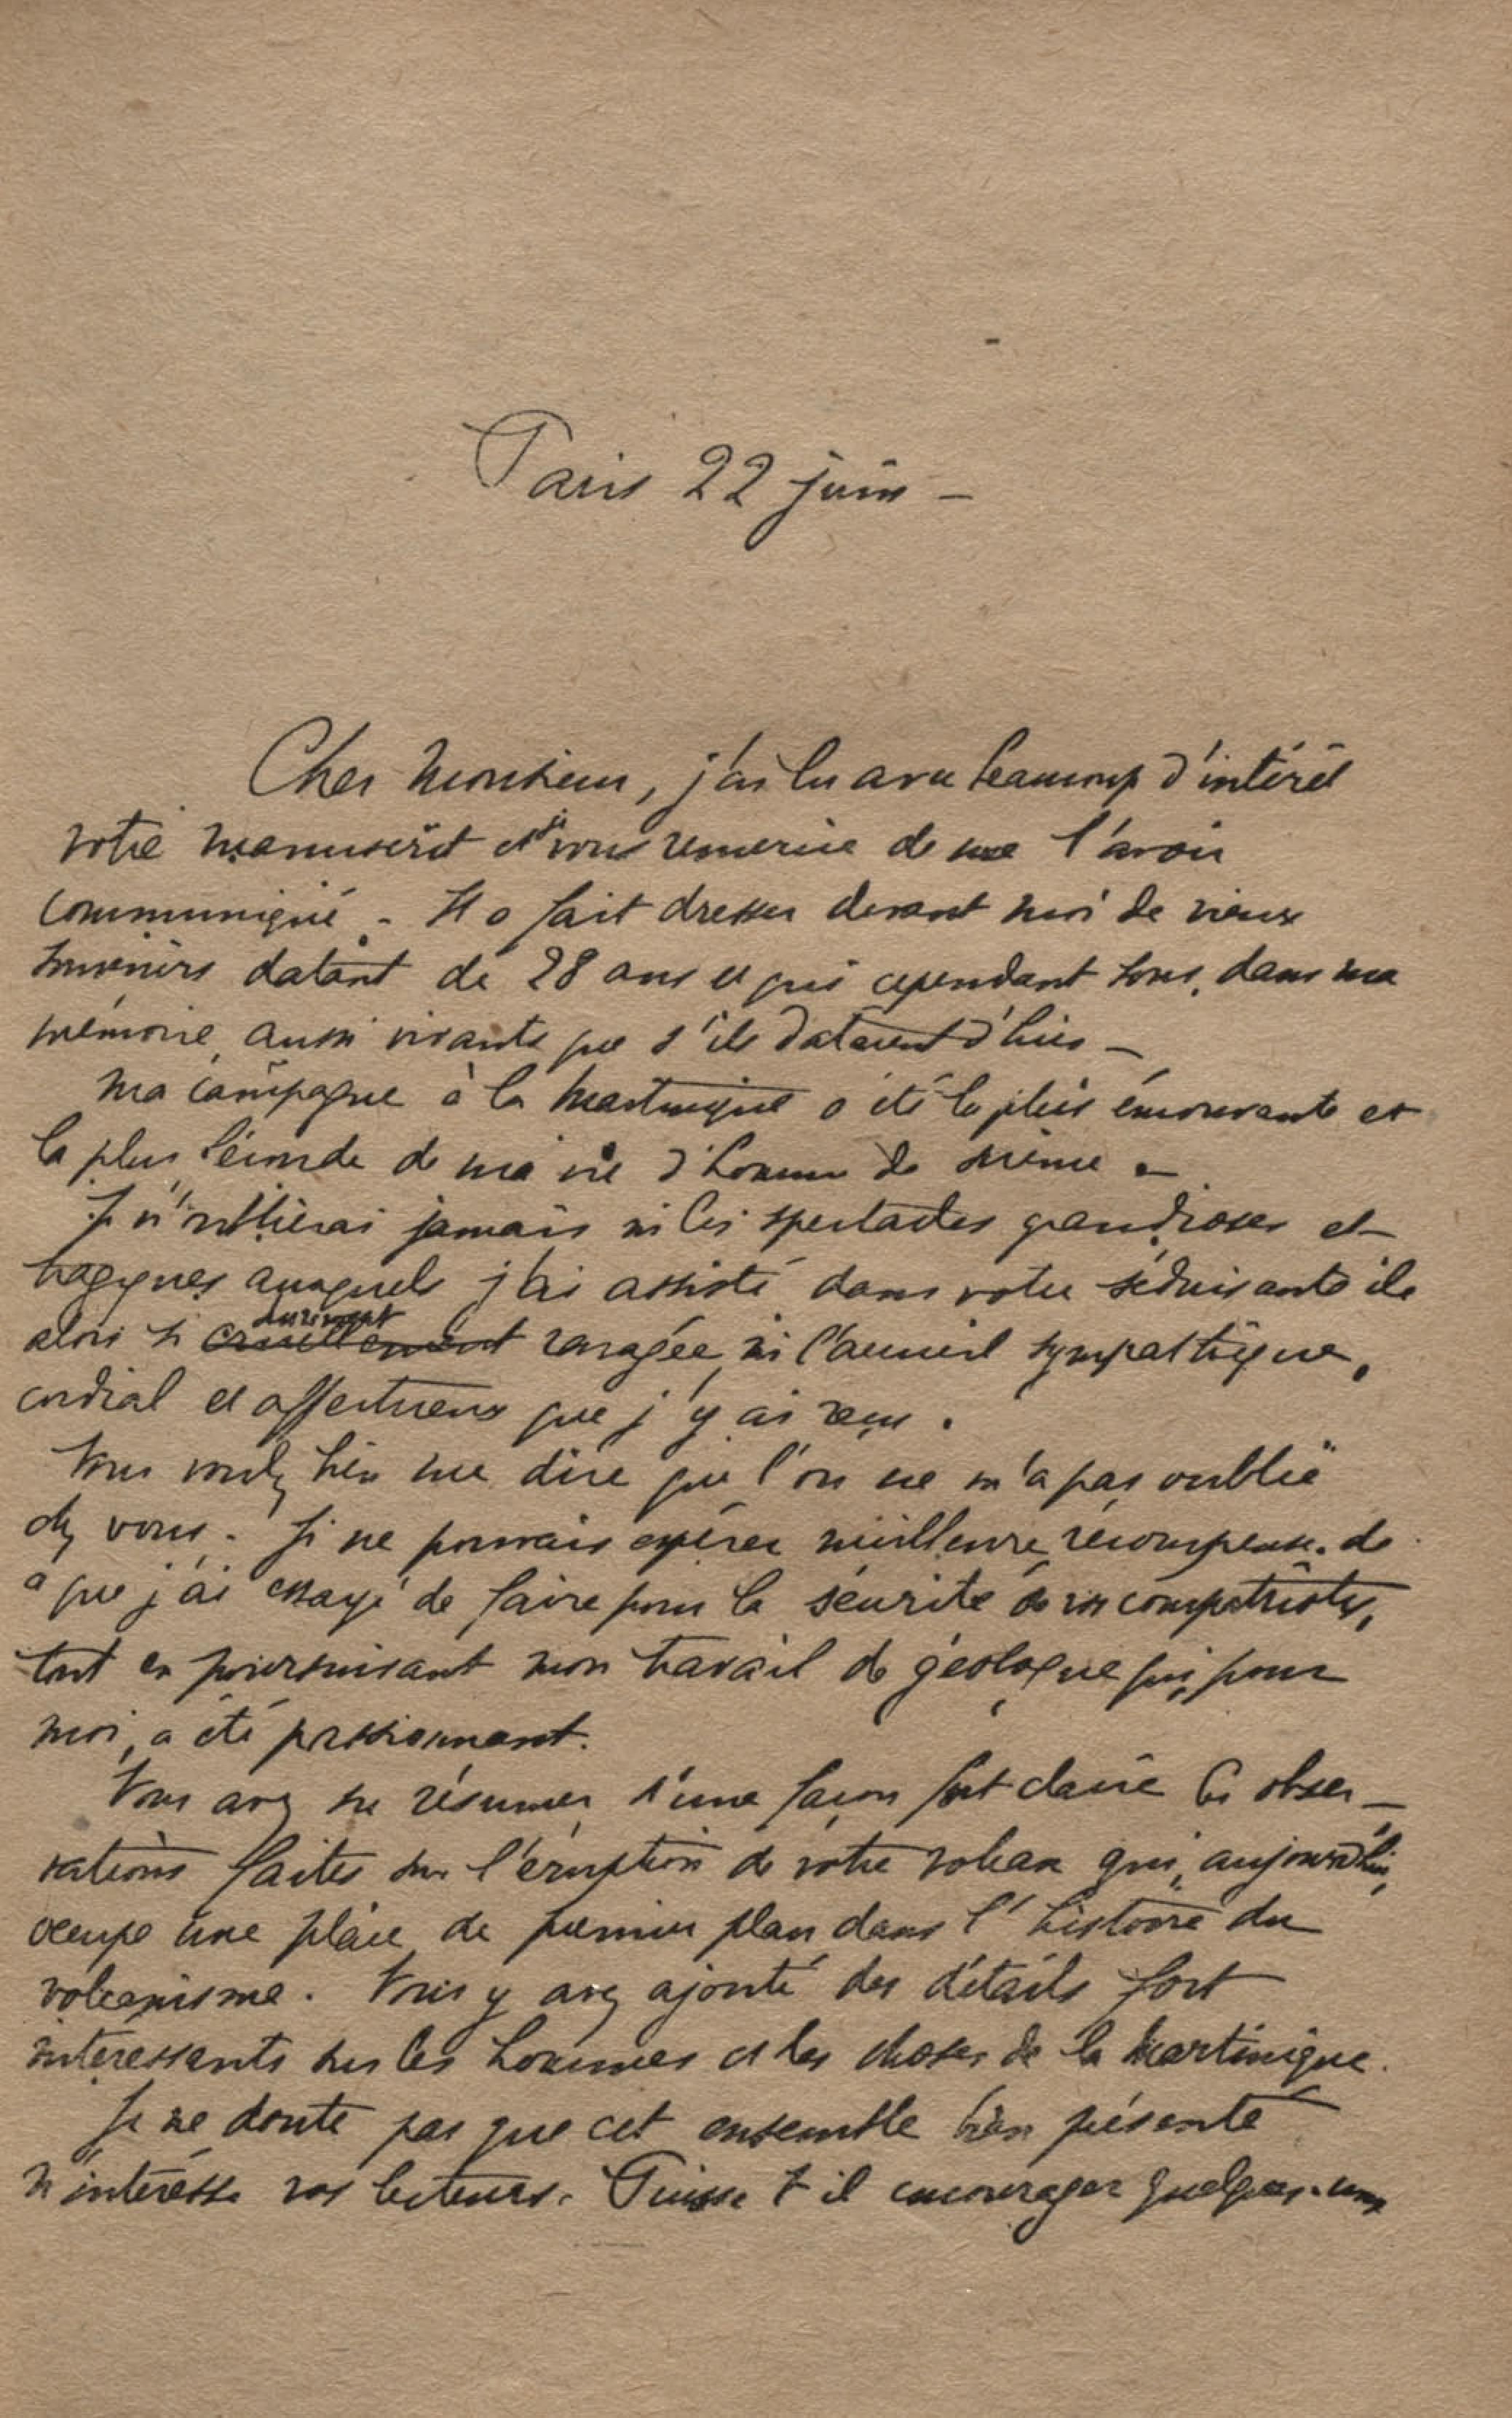 Paris 22 juin –
Cher Monsieur, j'ai lu avec beaucoup d'intérêt
votre manuscrit et je vous remercie de me l'avoir
communiqué. – Il a fait dresser devant moi de vieux
souvenirs datant de 28 ans et qui cependant sont, dans ma
mémoire, aussi vivants que s'ils dataient d'hier –
Ma campagne à la Martinique a été la plus émouvante et
la plus féconde de ma vie d'homme de science –
Je n'oublierai jamais ni les spectacles grandioses et
tragiques auxquels j'ai assisté dans votre séduisante île
alors si cruellement durement ravagée, ni l'accueil sympathique,
cordial et affectueux que j'y ai reçu.
Vous voulez bien me dire que l'on ne m'a pas oublié
chez vous. Je ne pouvais espérer meilleure récompense de
ce que j'ai essayé de faire pour la sécurité de vos compatriotes,
tout en poursuivant mon travail de géologue qui, pour
moi, a été passionnant.
Vous avez su résumer d'une façon fort claire les obser –
vations faites sur l'éruption de votre volcan qui, aujourd'hui,
occupe une place de premier plan dans l'histoire du
volcanisme. Vous y avez ajouté des détails fort
intéressants sur les hommes et les choses de la Martinique.
Je ne doute pas que cet ensemble bien présenté
n'intéresse vos lecteurs. Puisse t-il encourager quelques-uns